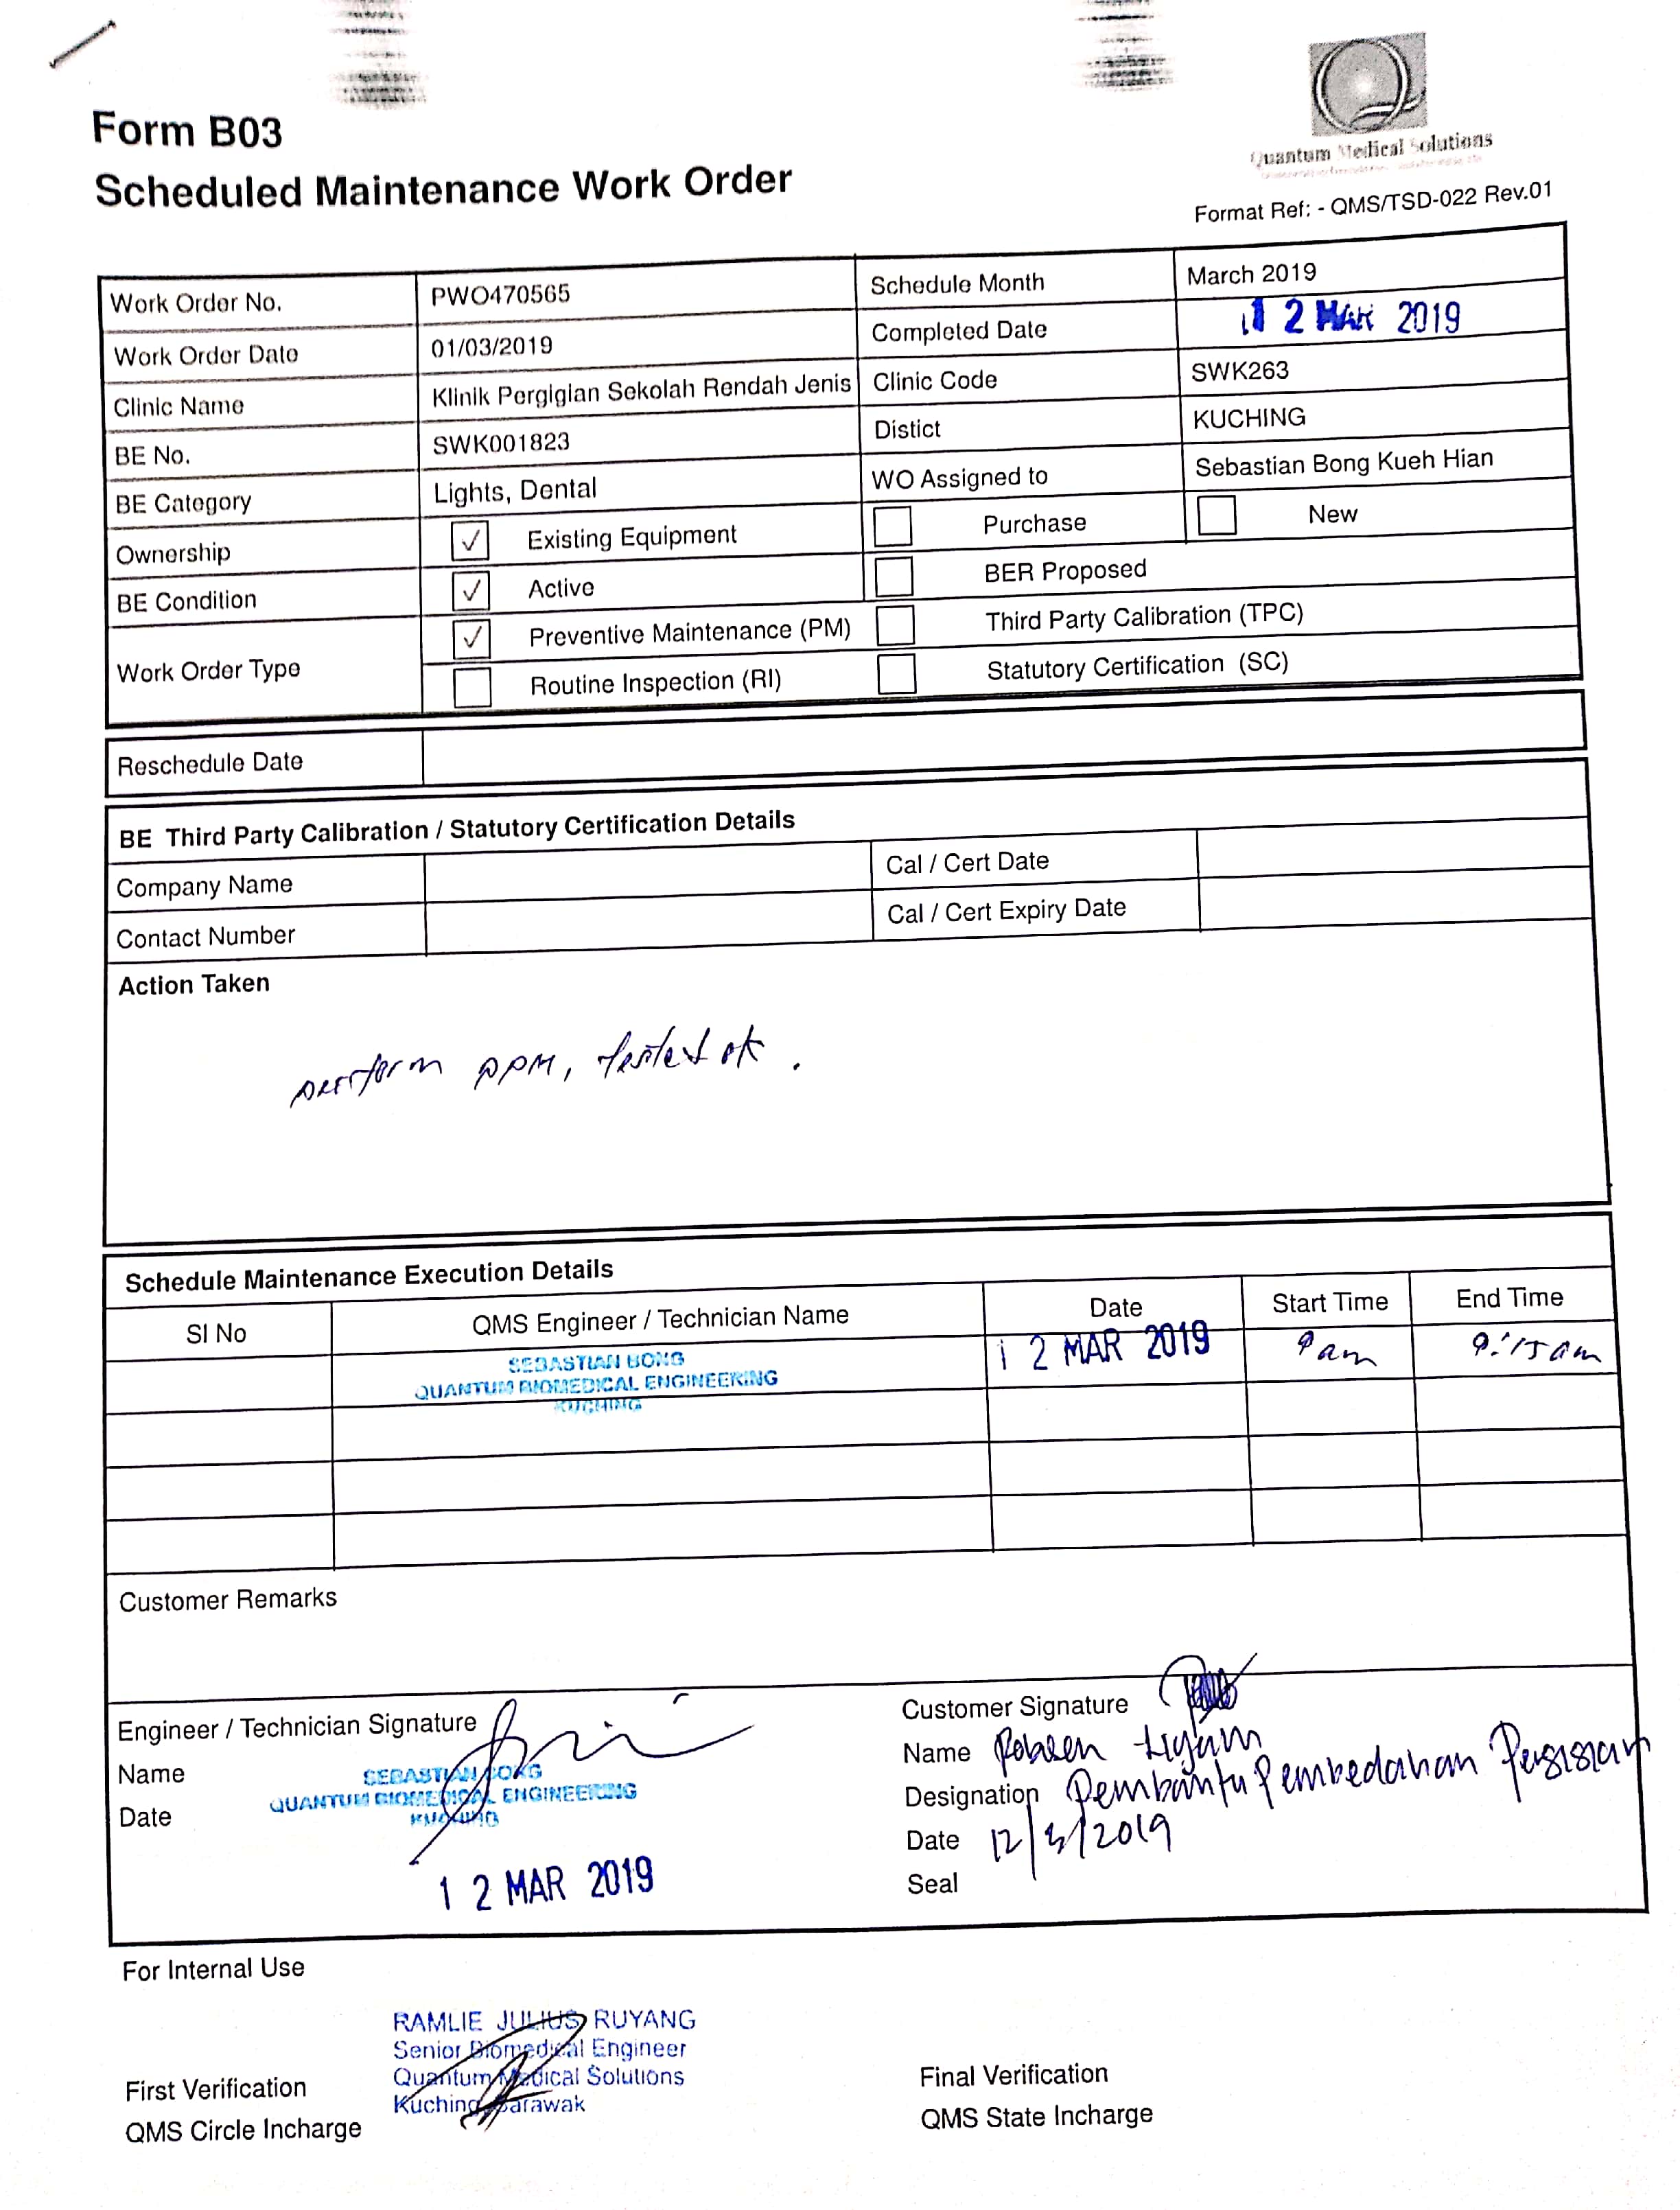 Quantum Medical Solutions
Form B03
Scheduled Maintenance Work Order
Format Ref: - QMS/TSD-022 Rev.01
Work Order No. PWO470565 Schedule Month March 2019
Work Order Date 01/03/2019 Completed Date 12 MAR 2019
Clinic Name Klinik Pergigian Sekolah Rendah Jenis Clinic Code SWK263
BE No. SWK001823 Distict KUCHING
BE Category Lights, Dental WO Assigned to Sebastian Bong Kueh Hian
Ownership ✓ Existing Equipment Purchase New
BE Condition ✓ Active BER Proposed
Work Order Type ✓ Preventive Maintenance (PM) Third Party Calibration (TPC)
Routine Inspection (RI) Statutory Certification (SC)
Reschedule Date
BE Third Party Calibration / Statutory Certification Details
Company Name Cal / Cert Date
Contact Number Cal / Cert Expiry Date
Action Taken
perform PPM, tested ok.
Schedule Maintenance Execution Details
SI No QMS Engineer / Technician Name Date Start Time End Time
SEBASTIAN BONG 12 MAR 2019 9am 9:15am
QUANTUM BIOMEDICAL ENGINEERING
KUCHING
Customer Remarks
Engineer / Technician Signature
Name SEBASTIAN BONG
QUANTUM BIOMEDICAL ENGINEERING
Date KUCHING
12 MAR 2019
Customer Signature
Name
Designation Pembantu Pembedahan Pergigian
Date 12/3/2019
Seal
For Internal Use
RAMLIE JULIUS RUYANG
Senior Biomedical Engineer
Quantum Medical Solutions
Kuching Sarawak
First Verification
QMS Circle Incharge
Final Verification
QMS State Incharge